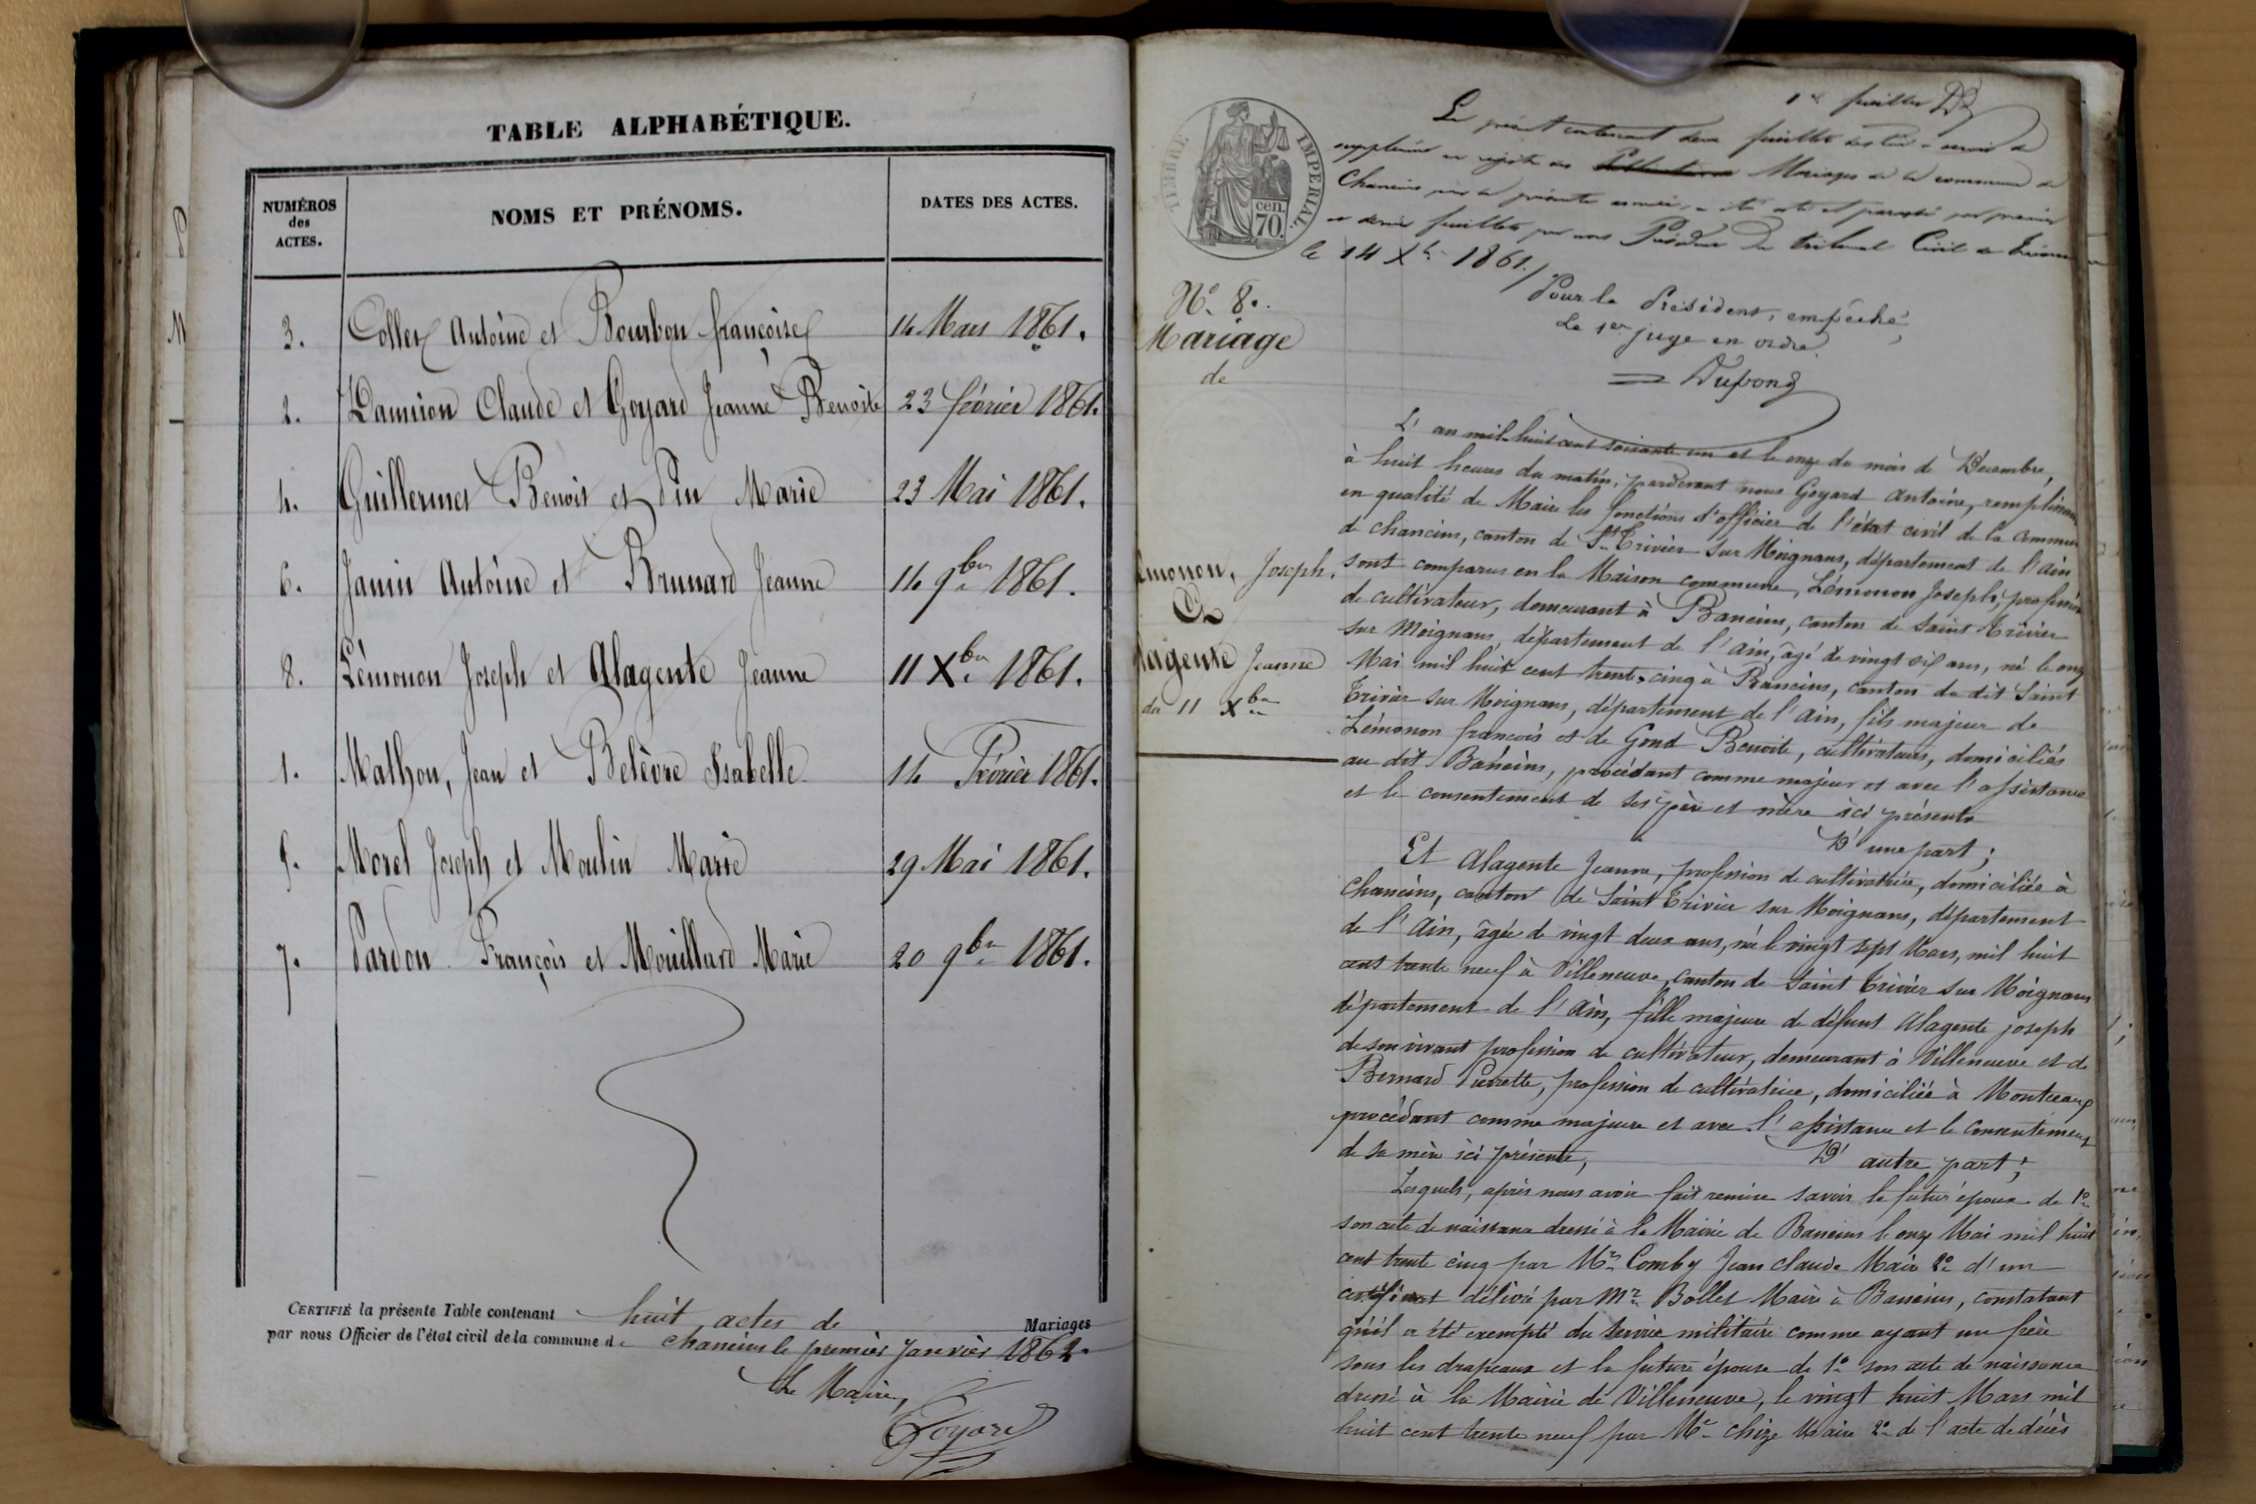 TABLE ALPHABÉTIQUE.
NUMÉROS
des
ACTES.
NOMS ET PRÉNOMS.
DATES DES ACTES.
3. Collet Antoine et Bourbon françoise 14 Mars 1861.
2. Damiron Claude et Goyard Jeanne Benoite 23 février 1861.
4. Guillermet Benoit et Pin Marie 23 Mai 1861.
6. Janin Antoine et Brunard Jeanne 14 9bre 1861.
8. Lémonon Joseph et Alagente Jeanne 11 Xbre 1861.
1. Mathon, Jean et Belèvre Isabelle 14 Février 1861.
5. Morel Joseph et Moulin Marie 29 Mai 1861.
7. Pardon François et Mouillard Marie 20 9bre 1861.
CERTIFIÉ la présente Table contenant huit actes de Mariages
par nous Officier de l'état civil de la commune de chaneins le premier Janvier 1862.
Le Maire,
Goyard
1er feuillet
TIMBRE IMPÉRIAL.
cen.
70.
Le présent contenant deux feuillets destiné à servir de
supplément au registre des Mariages de la commune de
Chaneins pour la présente année, a été coté et paraphé par premier
et dernier feuillets par nous Président du tribunal Civil de Trévoux
le 14 Xbre 1861./
Pour le Président, empêché,
Le 1er juge en ordre.
= Dupond
N° 8.
Mariage
de
émonon, Joseph.
&
lagente Jeanne
du 11 Xbre
L'an mil huit cent soixante un et le onze du mois de Décembre,
à huit heures du matin; pardevant nous Goyard Antoine, remplissant
en qualité de Maire les fonctions d'officier de l'état civil de la commune
de chaneins, canton de St Trivier sur Moignans, département de l'ain
sont comparus en la Maison commune, Lémonon Joseph, profession
de cultivateur, demeurant à Baneins, canton de Saint Trivier
sur Moignans, département de l'ain, âgé de vingt six ans, né le onze
Mai mil huit cent trente cinq à Baneins, canton du dit Saint
Trivier sur Moignans, département de l'ain, fils majeur de
Lémonon francois et de Gond Benoite, cultivateurs, domiciliés
au dit Baneins, procédant comme majeur et avec l'assistance
et le consentement de ses père et mère ici présents
D'une part;
Et Alagente Jeanne, profession de cultivatrice, domiciliée à
Chaneins, canton de Saint Trivier sur Moignans, département
de l'Ain, âgée de vingt deux ans, née le vingt sept Mars, mil huit
cent trente neuf à Villeneuve, canton de Saint Trivier sur Moignans
département de l'Ain, fille majeure de défunt Alagente joseph
de son vivant profession de cultivateur, demeurant à Villeneuve et de
Bernard Pierrette, profession de cultivatrice, domiciliée à Montceaux
procédant comme majeure et avec l'assistance et le consentement
de sa mère ici présente, D'autre part;
Lesquels, après nous avoir fait remise savoir le futur époux de 1°
son acte de naissance dressé à la Mairie de Baneins le onze Mai mil huit
cent trente cinq par Mr Comby Jean claude Maire 2° d'un
certificat délivré par Mr Bollet Maire à Baneins, constatant
qu'il a été exempté du service militaire comme ayant un frère
sous les drapeaux et la future épouse de 1° son acte de naissance
dressé à la Mairie de Villeneuve, le vingt huit Mars mil
huit cent trente neuf par Mr chize Maire 2° de l'acte de décès